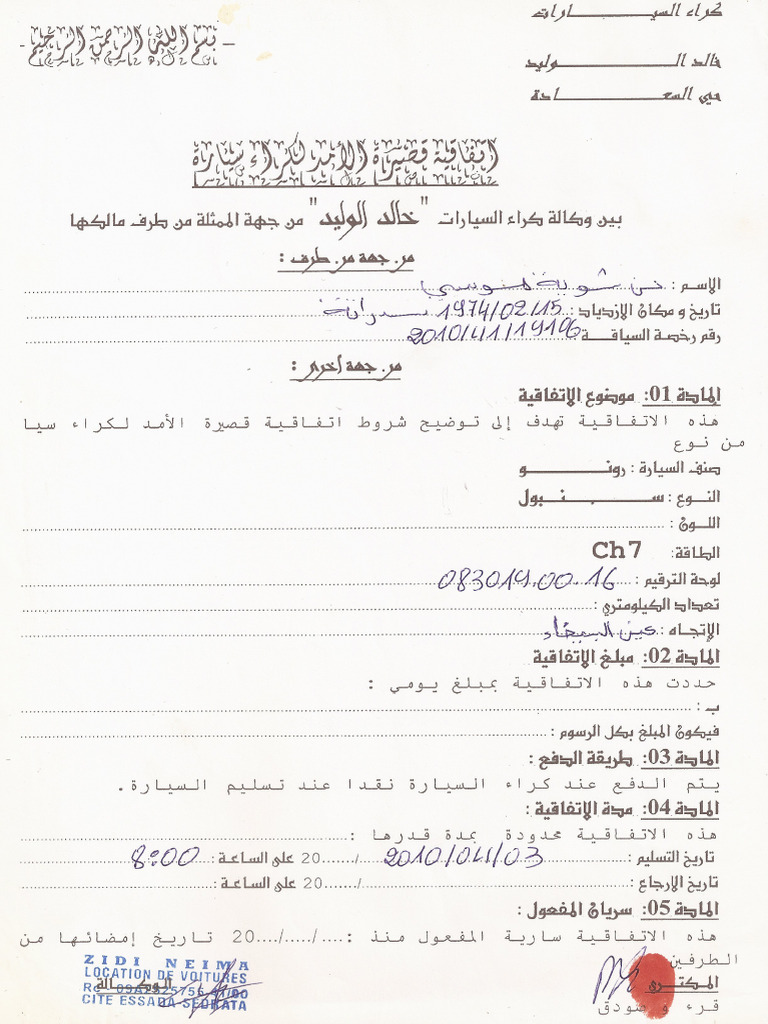 كراء السيـــارات
خالد الـــوليد
حي السعـــادة
بسم الله الرحمن الرحيم
اتفاقية قصيرة الأمد لكراء سيارة
بين وكالة كراء السيارات "خالد الوليد" من جهة الممثلة من طرف مالكها
من جهة من طرف :
الاسم : بن شوية موسى
تاريخ و مكان الازدياد : 1974/02/15 سدراتة
رقم رخصة السياقة
من جهة أخرى :
المادة 01: موضوع الاتفاقية
هذه الاتفاقية تهدف إلى توضيح شروط اتفاقية قصيرة الأمد لكراء سيا
من نوع
صنف السيارة : رونـــو
النوع : سـمـبـول
اللون :
الطاقة: Ch7
لوحة الترقيم : 083019.00.16
تعداد الكيلومتري :
الإتجاه : عين البيضاء
المادة 02: مبلغ الاتفاقية
حددت هذه الاتفاقية بمبلغ يومي :
ب :
فيكون المبلغ بكل الرسوم :
المادة 03: طريقة الدفع :
يتم الدفع عند كراء السيارة نقدا عند تسليم السيارة.
المادة 04: مدة الاتفاقية :
هذه الاتفاقية محدودة بمدة قدرها :
تاريخ التسليم : 2010/04/03 /......20 على الساعة : 8:00
تاريخ الارجاع : /......20 على الساعة :
المادة 05: سريان المفعول :
هذه الاتفاقية سارية المفعول منذ :..../...../....20 تاريخ إمضائها من
الطرفين
المكتري
قرء و صودق
الوكالة
ZIDI NEIMA
LOCATION DE VOITURES
CITE ESSADA SEDRATA